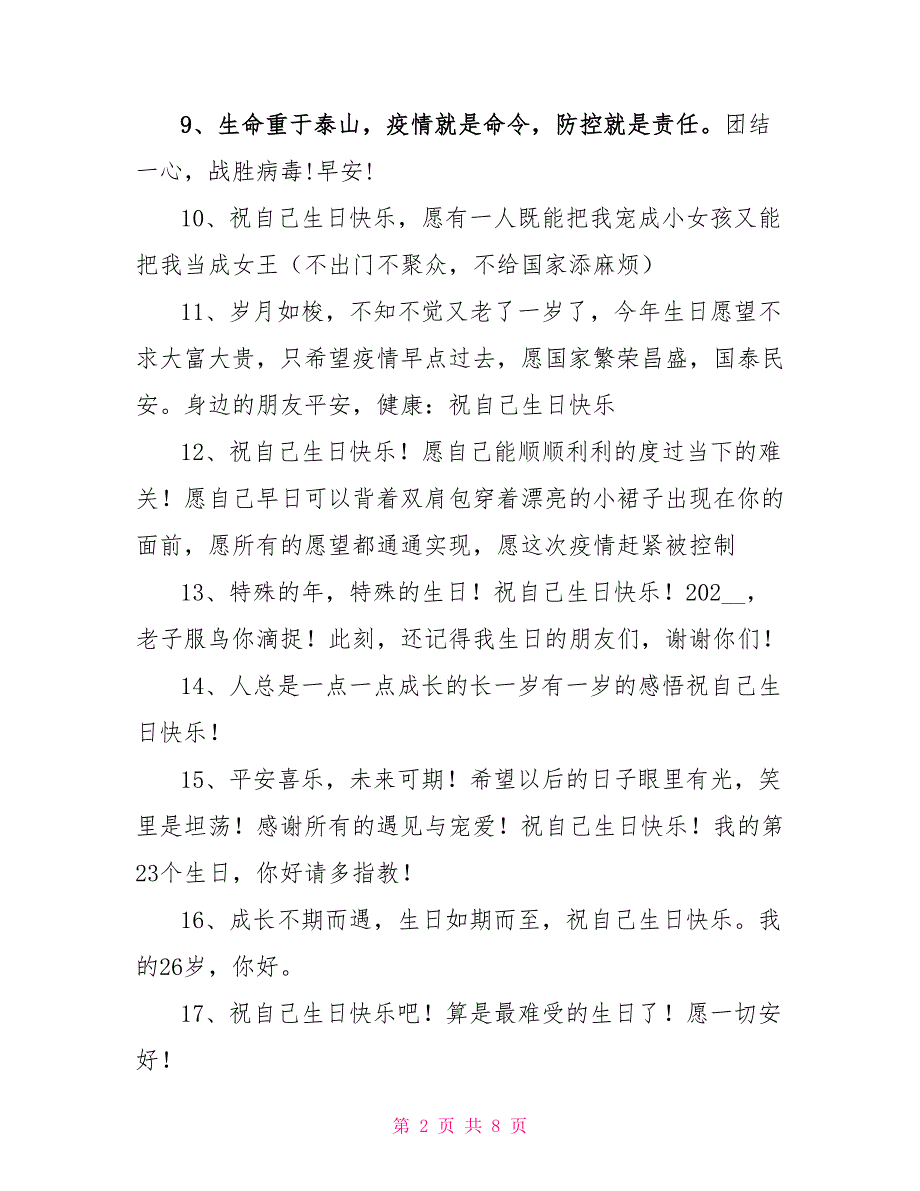 9、生命重于泰山，疫情就是命令，防控就是责任。团结
一心，战胜病毒!早安!
10、祝自己生日快乐，愿有一人既能把我宠成小女孩又能
把我当成女王（不出门不聚众，不给国家添麻烦）
11、岁月如梭，不知不觉又老了一岁了，今年生日愿望不
求大富大贵，只希望疫情早点过去，愿国家繁荣昌盛，国泰民
安。身边的朋友平安，健康：祝自己生日快乐
12、祝自己生日快乐！愿自己能顺顺利利的度过当下的难
关！愿自己早日可以背着双肩包穿着漂亮的小裙子出现在你的
面前，愿所有的愿望都通通实现，愿这次疫情赶紧被控制
13、特殊的年，特殊的生日！祝自己生日快乐！202__，
老子服鸟你滴捉！此刻，还记得我生日的朋友们，谢谢你们！
14、人总是一点一点成长的长一岁有一岁的感悟祝自己生
日快乐！
15、平安喜乐，未来可期！希望以后的日子眼里有光，笑
里是坦荡！感谢所有的遇见与宠爱！祝自己生日快乐！我的第
23个生日，你好请多指教！
16、成长不期而遇，生日如期而至，祝自己生日快乐。我
的26岁，你好。
17、祝自己生日快乐吧！算是最难受的生日了！愿一切安
好！
第 2 页 共 8 页